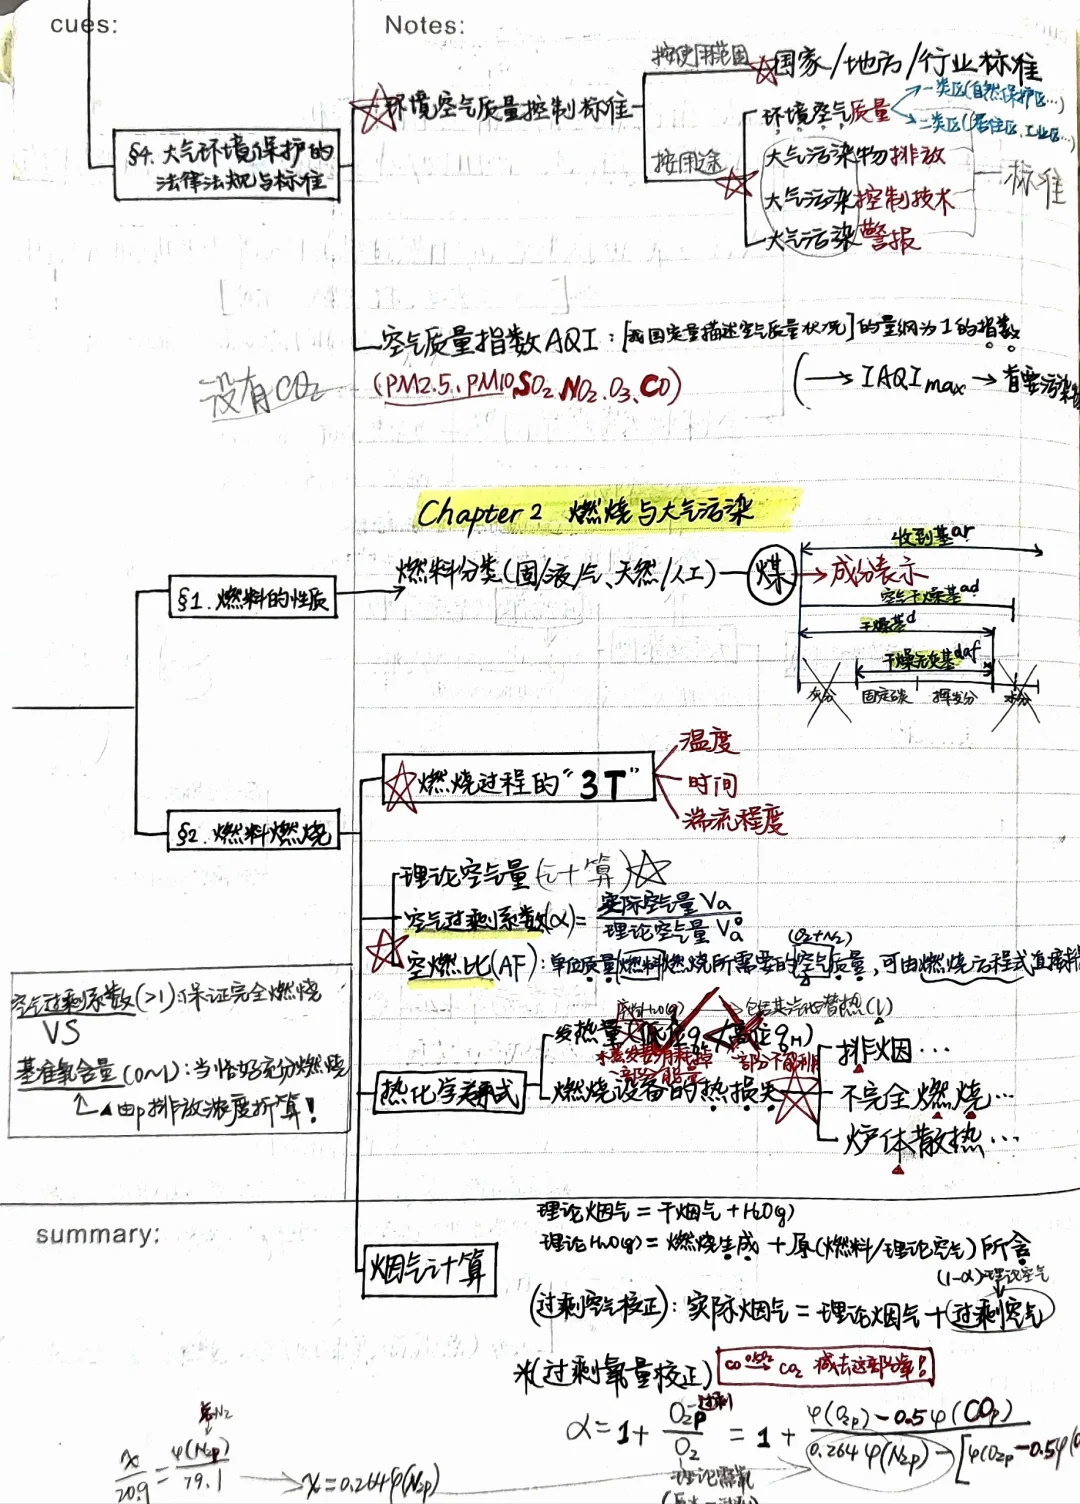 cues:
Notes:
按使用范围
国家/地方/行业标准
环境空气质量控制标准
环境空气质量
一类区(自然保护区…)
二类区(居住区、工业区…)
§4. 大气环境保护的
法律法规与标准
按用途
大气污染物排放
大气污染控制技术
大气污染警报
标准
空气质量指数AQI:[我国定量描述空气质量状况]的量纲为1的指数
没有CO2
(PM2.5、PM10、SO2、NO2、O3、CO)
(→ IAQImax → 首要污染物
Chapter 2 燃烧与大气污染
§1. 燃料的性质
燃料分类(固/液/气、天然/人工)
煤
成分表示
收到基ar
空气干燥基ad
干燥基d
干燥无灰基daf
灰分 固定碳 挥发分 水分
燃烧过程的“3T”
温度
时间
湍流程度
§2. 燃料燃烧
理论空气量(计算)
空气过剩系数(α)= 实际空气量Va / 理论空气量Va°
(O2+N2)
空燃比(AF):单位质量燃料燃烧所需要的空气质量,可由燃烧方程式直接
空气过剩系数(>1):保证完全燃烧
VS
基准氧含量(0~1):当恰好充分燃烧
由ρ排放浓度折算!
H2O(g)
包括其汽化潜热(l)
发热量 低位qL<高位qH)
水蒸发要消耗掉
一部分能量
热化学关系式
燃烧设备的热损失
排烟…
不完全燃烧…
炉体散热…
summary:
烟气计算
理论烟气=干烟气+H2O(g)
理论H2O(g)=燃烧生成+原(燃料/理论空气)所含
(1-α)理论空气
(过剩空气校正):实际烟气=理论烟气+过剩空气
*(过剩氧量校正)
CO 0.5O2→ CO2 减去这部分氧!
α=1+ O2p过剩 / O2 = 1+ φ(O2p)-0.5φ(COp) / 0.264φ(N2p)-[φ(O2p-0.5φ(
理论需氧
总N2
x/20.9 = φ(N2p)/79.1 → x=0.264φ(N2p)